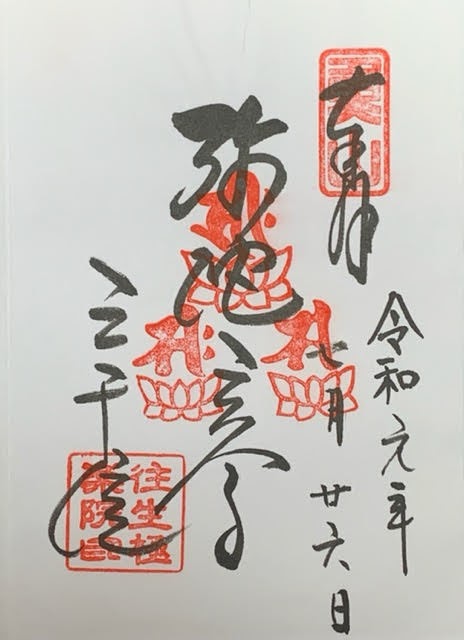 奉拝
令和元年
七月廿六日
弥陀三尊
三千院
往生極
楽院印